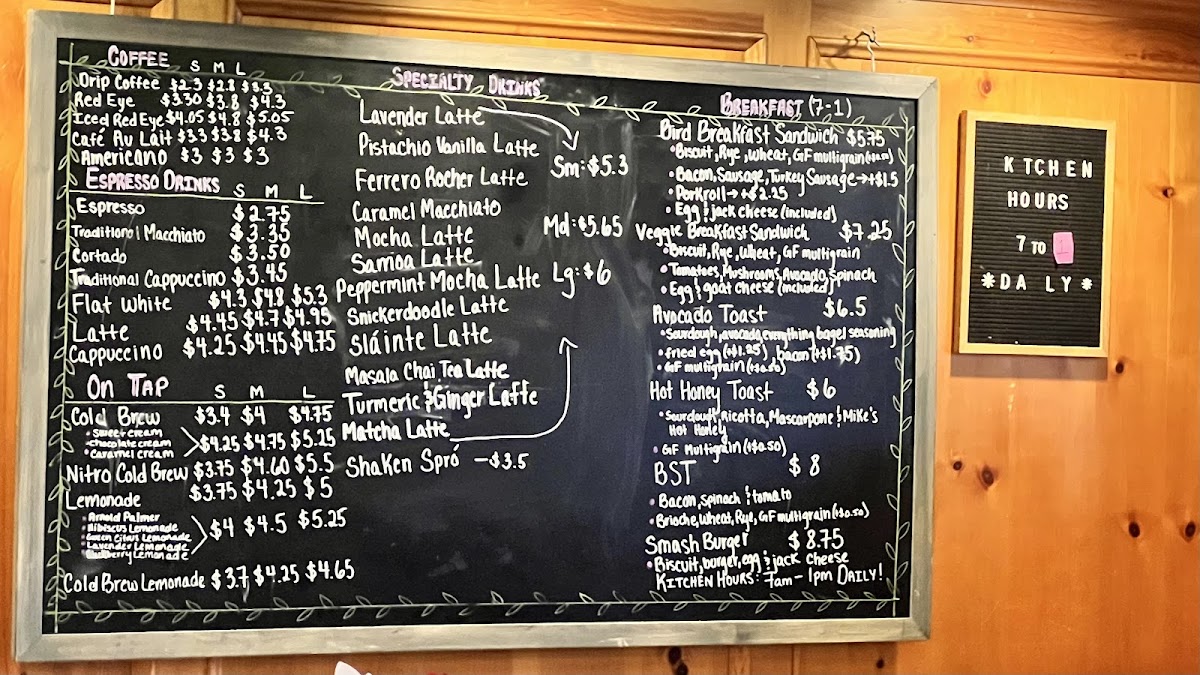 COFFEE S M L
Drip Coffee $2.3 $2.8 $3.3
Red Eye $3.30 $3.8 $4.3
Iced Red Eye $4.05 $4.8 $5.05
Café Au Lait $3.3 $3.8 $4.3
Americano $3 $3 $3
ESPRESSO DRINKS S M L
Espresso $2.75
Traditional Macchiato $3.35
Cortado $3.50
Traditional Cappuccino $3.45
Flat White $4.3 $4.8 $5.3
Latte $4.45 $4.7 $4.95
Cappuccino $4.25 $4.45 $4.75
ON TAP S M L
Cold Brew $3.4 $4 $4.75
• Sweet cream
• chocolate cream $4.25 $4.75 $5.25
• Caramel cream
Nitro Cold Brew $3.75 $4.60 $5.5
Lemonade $3.75 $4.25 $5
• Arnold Palmer
• Hibiscus Lemonade
• Green Citrus Lemonade $4 $4.5 $5.25
• Lavender Lemonade
• Blackberry Lemonade
Cold Brew Lemonade $3.7 $4.25 $4.65
SPECIALTY DRINKS
Lavender Latte
Pistachio Vanilla Latte
Sm: $5.3
Ferrero Rocher Latte
Caramel Macchiato
Md: $5.65
Mocha Latte
Samoa Latte
Peppermint Mocha Latte Lg: $6
Snickerdoodle Latte
Sláinte Latte
Masala Chai Tea Latte
Turmeric & Ginger Latte
Matcha Latte
Shaken Spró - $3.5
BREAKFAST (7-1)
Bird Breakfast Sandwich $5.75
• Biscuit, Rye, Wheat, GF multigrain (+$0.50)
• Bacon, Sausage, Turkey Sausage → +$1.5
• Porkroll → +$2.25
• Egg & jack cheese (included)
Veggie Breakfast Sandwich $7.25
• Biscuit, Rye, Wheat, GF multigrain
• Tomatoes, Mushrooms, Avocado, Spinach
• Egg & goat cheese (included)
Avocado Toast $6.5
• Sourdough, avocado, everything bagel seasoning
• fried egg (+$1.25), bacon (+$1.75)
• GF multigrain (+$0.50)
Hot Honey Toast $6
• Sourdough, Ricotta, Mascarpone & Mike's
Hot Honey
• GF Multigrain (+$0.50)
BST $8
• Bacon, Spinach & tomato
• Brioche, Wheat, Rye, GF multigrain (+$0.50)
Smash Burger $8.75
• Biscuit, burger, egg & jack cheese
KITCHEN HOURS: 7am - 1pm DAILY!
K TCHEN
HOURS
7 TO 1
*DA LY*